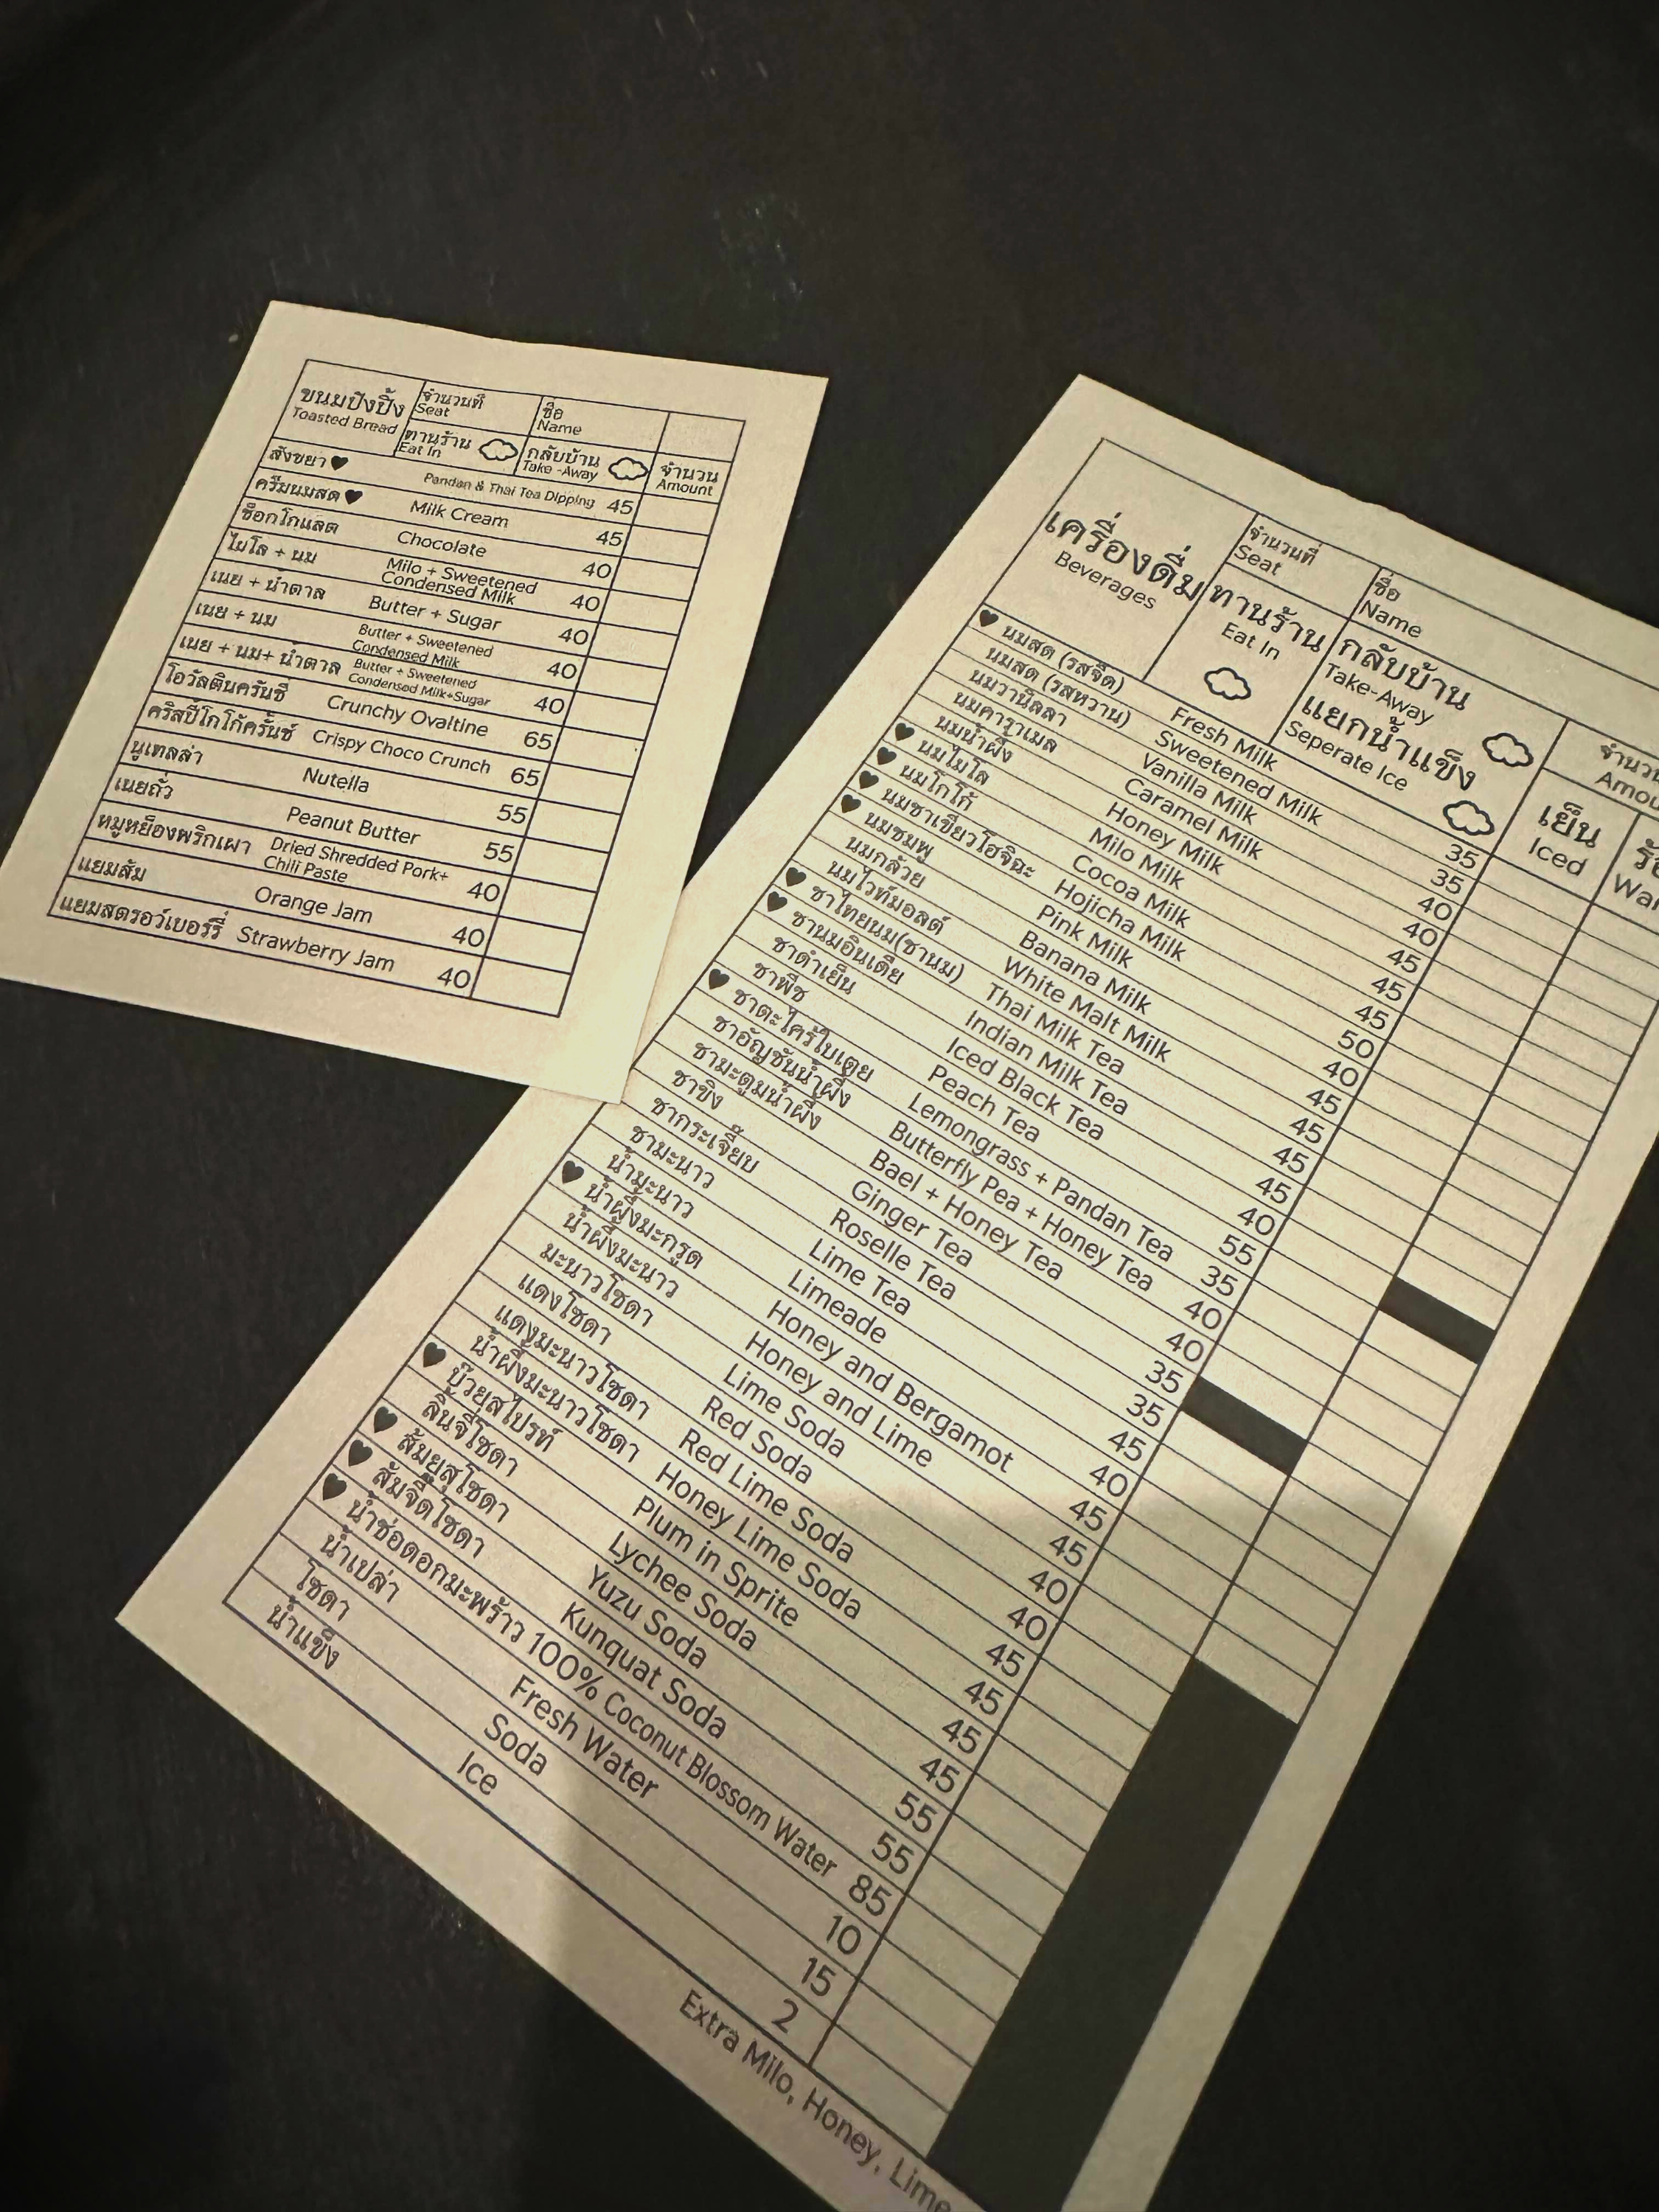 ขนมปังปิ้ง
Toasted Bread
จำนวนที่
Seat
ชื่อ
Name
ทานร้าน
Eat In
กลับบ้าน
Take -Away
จำนวน
Amount
สังขยา ♥ Pandan & Thai Tea Dipping 45
ครีมนมสด ♥ Milk Cream 45
ช็อกโกแลต Chocolate 40
ไมโล + นม Milo + Sweetened Condensed Milk 40
เนย + น้ำตาล Butter + Sugar 40
เนย + นม Butter + Sweetened Condensed Milk 40
เนย + นม+ น้ำตาล Butter + Sweetened Condensed Milk+Sugar 40
โอวัลตินครันชี่ Crunchy Ovaltine 65
คริสปีโกโก้ครั้นช์ Crispy Choco Crunch 65
นูเทลล่า Nutella 55
เนยถั่ว Peanut Butter 55
หมูหย็องพริกเผา Dried Shredded Pork+ Chili Paste 40
แยมส้ม Orange Jam 40
แยมสตรอว์เบอร์รี่ Strawberry Jam 40
เครื่องดื่ม
Beverages
จำนวนที่
Seat
ชื่อ
Name
ทานร้าน
Eat In
กลับบ้าน
Take-Away
แยกน้ำแข็ง
Seperate Ice
จำนว
Amou
เย็น
Iced
ร้
Wa
♥ นมสด (รสจืด) Fresh Milk 35
นมสด (รสหวาน) Sweetened Milk 35
นมวานิลลา Vanilla Milk 40
นมคาราเมล Caramel Milk 40
นมน้ำผึ้ง Honey Milk 45
♥ นมไมโล Milo Milk 45
♥ นมโกโก้ Cocoa Milk 45
♥ นมชาเขียวโฮจิฉะ Hojicha Milk 50
♥ นมชมพู Pink Milk 40
นมกล้วย Banana Milk 45
นมไวท์มอลต์ White Malt Milk 45
♥ ชาไทยนม(ชานม) Thai Milk Tea 45
♥ ชานมอินเดีย Indian Milk Tea 45
ชาดำเย็น Iced Black Tea 40
ชาพีช Peach Tea 55
♥ ชาตะไคร้ใบเตย Lemongrass + Pandan Tea 35
ชาอัญชันน้ำผึ้ง Butterfly Pea + Honey Tea 40
ชามะตูมน้ำผึ้ง Bael + Honey Tea 40
ชาขิง Ginger Tea 35
ชากระเจี๊ยบ Roselle Tea 35
ชามะนาว Lime Tea 45
น้ำมะนาว Limeade 40
♥ น้ำผึ้งมะกรูด Honey and Bergamot 45
น้ำผึ้งมะนาว Honey and Lime 45
มะนาวโซดา Lime Soda 40
แดงโซดา Red Soda 40
แดงมะนาวโซดา Red Lime Soda 45
น้ำผึ้งมะนาวโซดา Honey Lime Soda 45
♥ บ๊วยสไปรท์ Plum in Sprite 45
ลิ้นจี่โซดา Lychee Soda 45
♥ ส้มยุสุโซดา Yuzu Soda 55
♥ ส้มจี๊ดโซดา Kunquat Soda 55
♥ น้ำช่อดอกมะพร้าว 100% Coconut Blossom Water 85
น้ำเปล่า Fresh Water 10
โซดา Soda 15
น้ำแข็ง Ice 2
Extra Milo, Honey, Lime